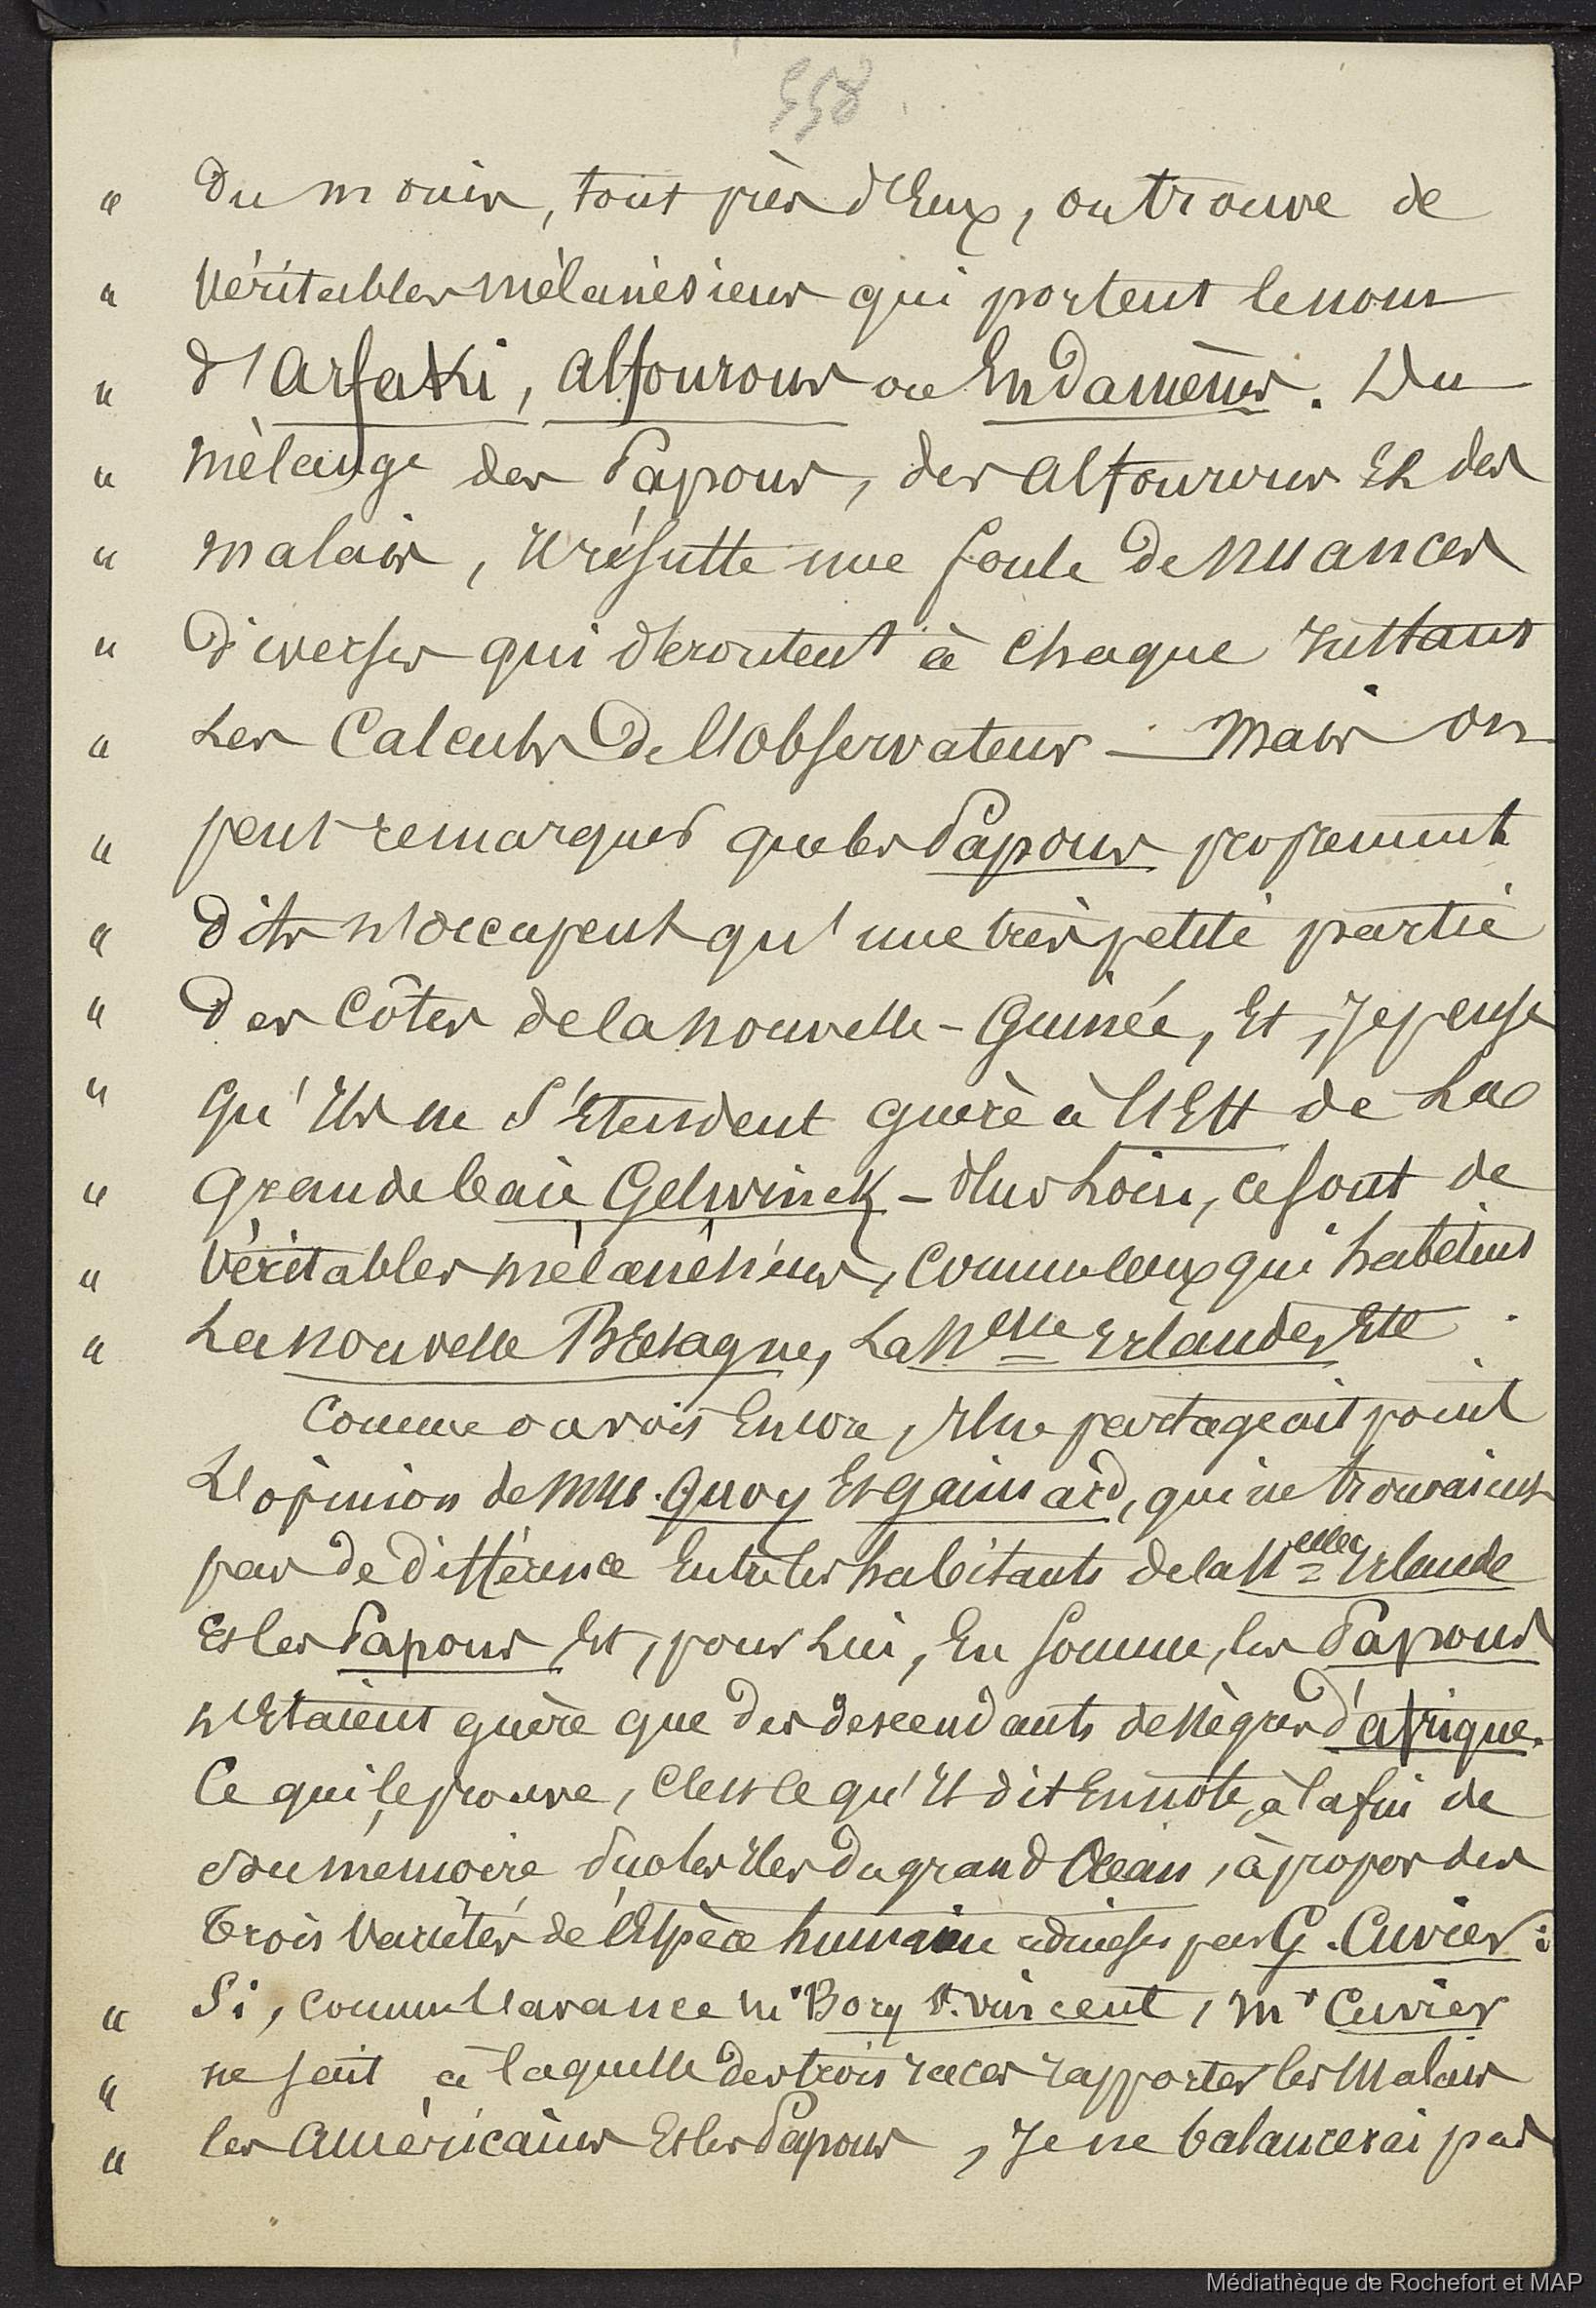 558
" Du moins, tout près d'Eux, on trouve de
" Véritables mélanésiens qui portent le nom
" d'Arfaki, Alfourous ou Endamènes. Du
" mélange des Papous, des Alfourous Et des
" malais, Il résulte une foule de nuances
" Diverses qui déroutent à chaque Instant
" Les Calculs De l'Observateur — Mais on
" peut remarquer que les Papous proprement
" dits n'occupent qu'une très petite partie
" Des Côtes de la nouvelle-Guinée, Et, Je pense
" qu'Ils ne S'Etendent guère à l'Est de La
" grande baie Gelwinck – Plus Loin, ce sont de
" Véritables mélanésiens, Comme ceux qui habitent
" La nouvelle Bretagne, La Nelle Irlande, Etc
Comme on voit Encore, Il ne partageait point
L'opinion de MM. Quoy Et Gaimard, qui ne trouvaient
pas de différence Entre les habitants de la Nelle Irlande
Et les Papous Et, pour Lui, En Somme, les Papous
n'Etaient guère que des descendants de Nègres d'afrique.
Ce qui le prouve, C'est ce qu'Il dit En note, à la fin de
Son mémoire Sur les Iles du grand Océan, à propos des
Trois Variétés de l'Espèce humaine admises par G. Cuvier :
" Si, comme l'avance Mr Bory St. Vincent, Mr Cuvier
" ne sait à laquelle des trois races rapporter les Malais
" les Américains Et les Papous, Je ne balancerai pas
Médiathèque de Rochefort et MAP